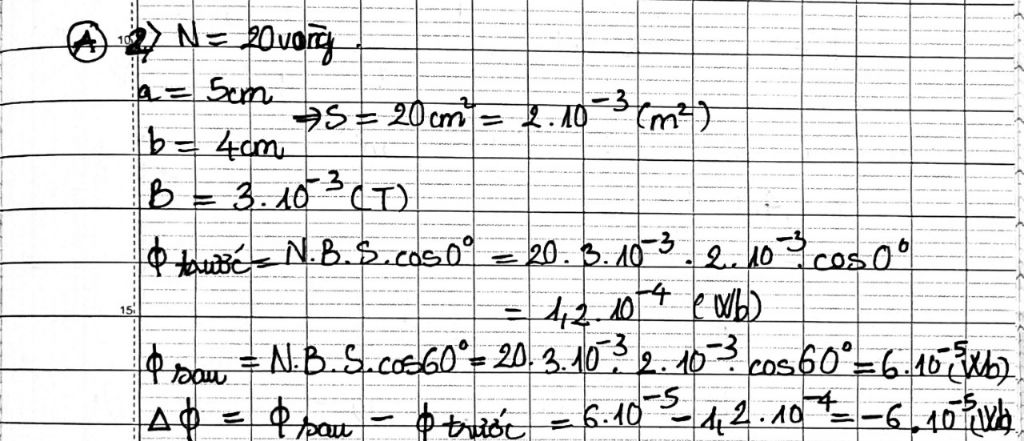 (A) 2) N = 20 vòng.
a = 5cm
⇒ S = 20cm² = 2.10⁻³ (m²)
b = 4cm
B = 3.10⁻³ (T)
ϕ trước = N.B.S.cos0° = 20.3.10⁻³.2.10⁻³.cos0°
15 = 1,2.10⁻⁴ (Wb)
ϕ sau = N.B.S.cos60° = 20.3.10⁻³.2.10⁻³.cos60° = 6.10⁻⁵ (Wb)
Δϕ = ϕ sau - ϕ trước = 6.10⁻⁵ - 1,2.10⁻⁴ = -6.10⁻⁵ (Wb)